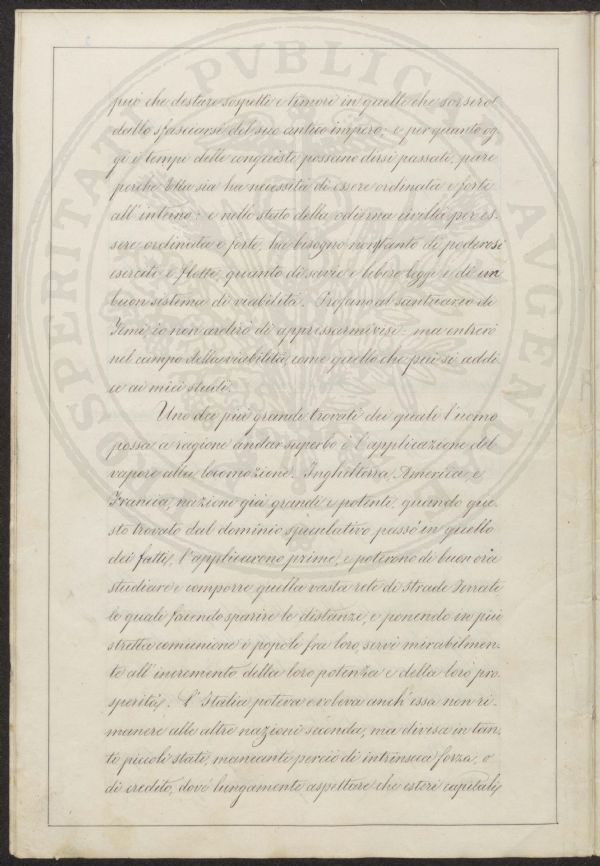 può che destare sospetti e timori in quelle che sorsero
dallo sfasciarsi del suo antico impero; e per quanto og-
gi i tempi delle conquiste possano dirsi passati, pure
perchè Ella sia ha necessità di essere ordinata e forte
all'interno: e nello stato della odierna civiltà per es-
sere ordinata e forte, ha bisogno non tanto di poderosi
eserciti e flotte, quanto di savie e libere leggi e di un
buon sistema di viabilità. Profano al santuario di
Temi, io non ardirò di appressarmivisi - ma entrerò
nel campo della viabilità, come quello che più si addi-
ce ai miei studi.
Uno dei più grandi trovati dei quali l'uomo
possa a ragione andar superbo è l'applicazione del
vapore alla locomozione. Inghilterra, America e
Francia, nazioni già grandi e potenti, quando que-
sto trovato dal dominio speculativo passò in quello
dei fatti, l'applicarono prime, e poterono di buon ora
studiare e comporre quella vasta rete di strade ferrate
le quali facendo sparire le distanze, e ponendo in più
stretta comunione i popoli fra loro, servì mirabilmen-
te all'incremento della loro potenza e della loro pro-
sperità. L'Italia poteva e voleva anch'essa non ri-
manere alle altre nazioni seconda, ma divisa in tan-
ti piccoli stati, mancanti perciò di intrinseca forza, e
di credito, dovè lungamente aspettare che esteri capitali
PVBLICAE AVGENDAE
PROSPERITATI